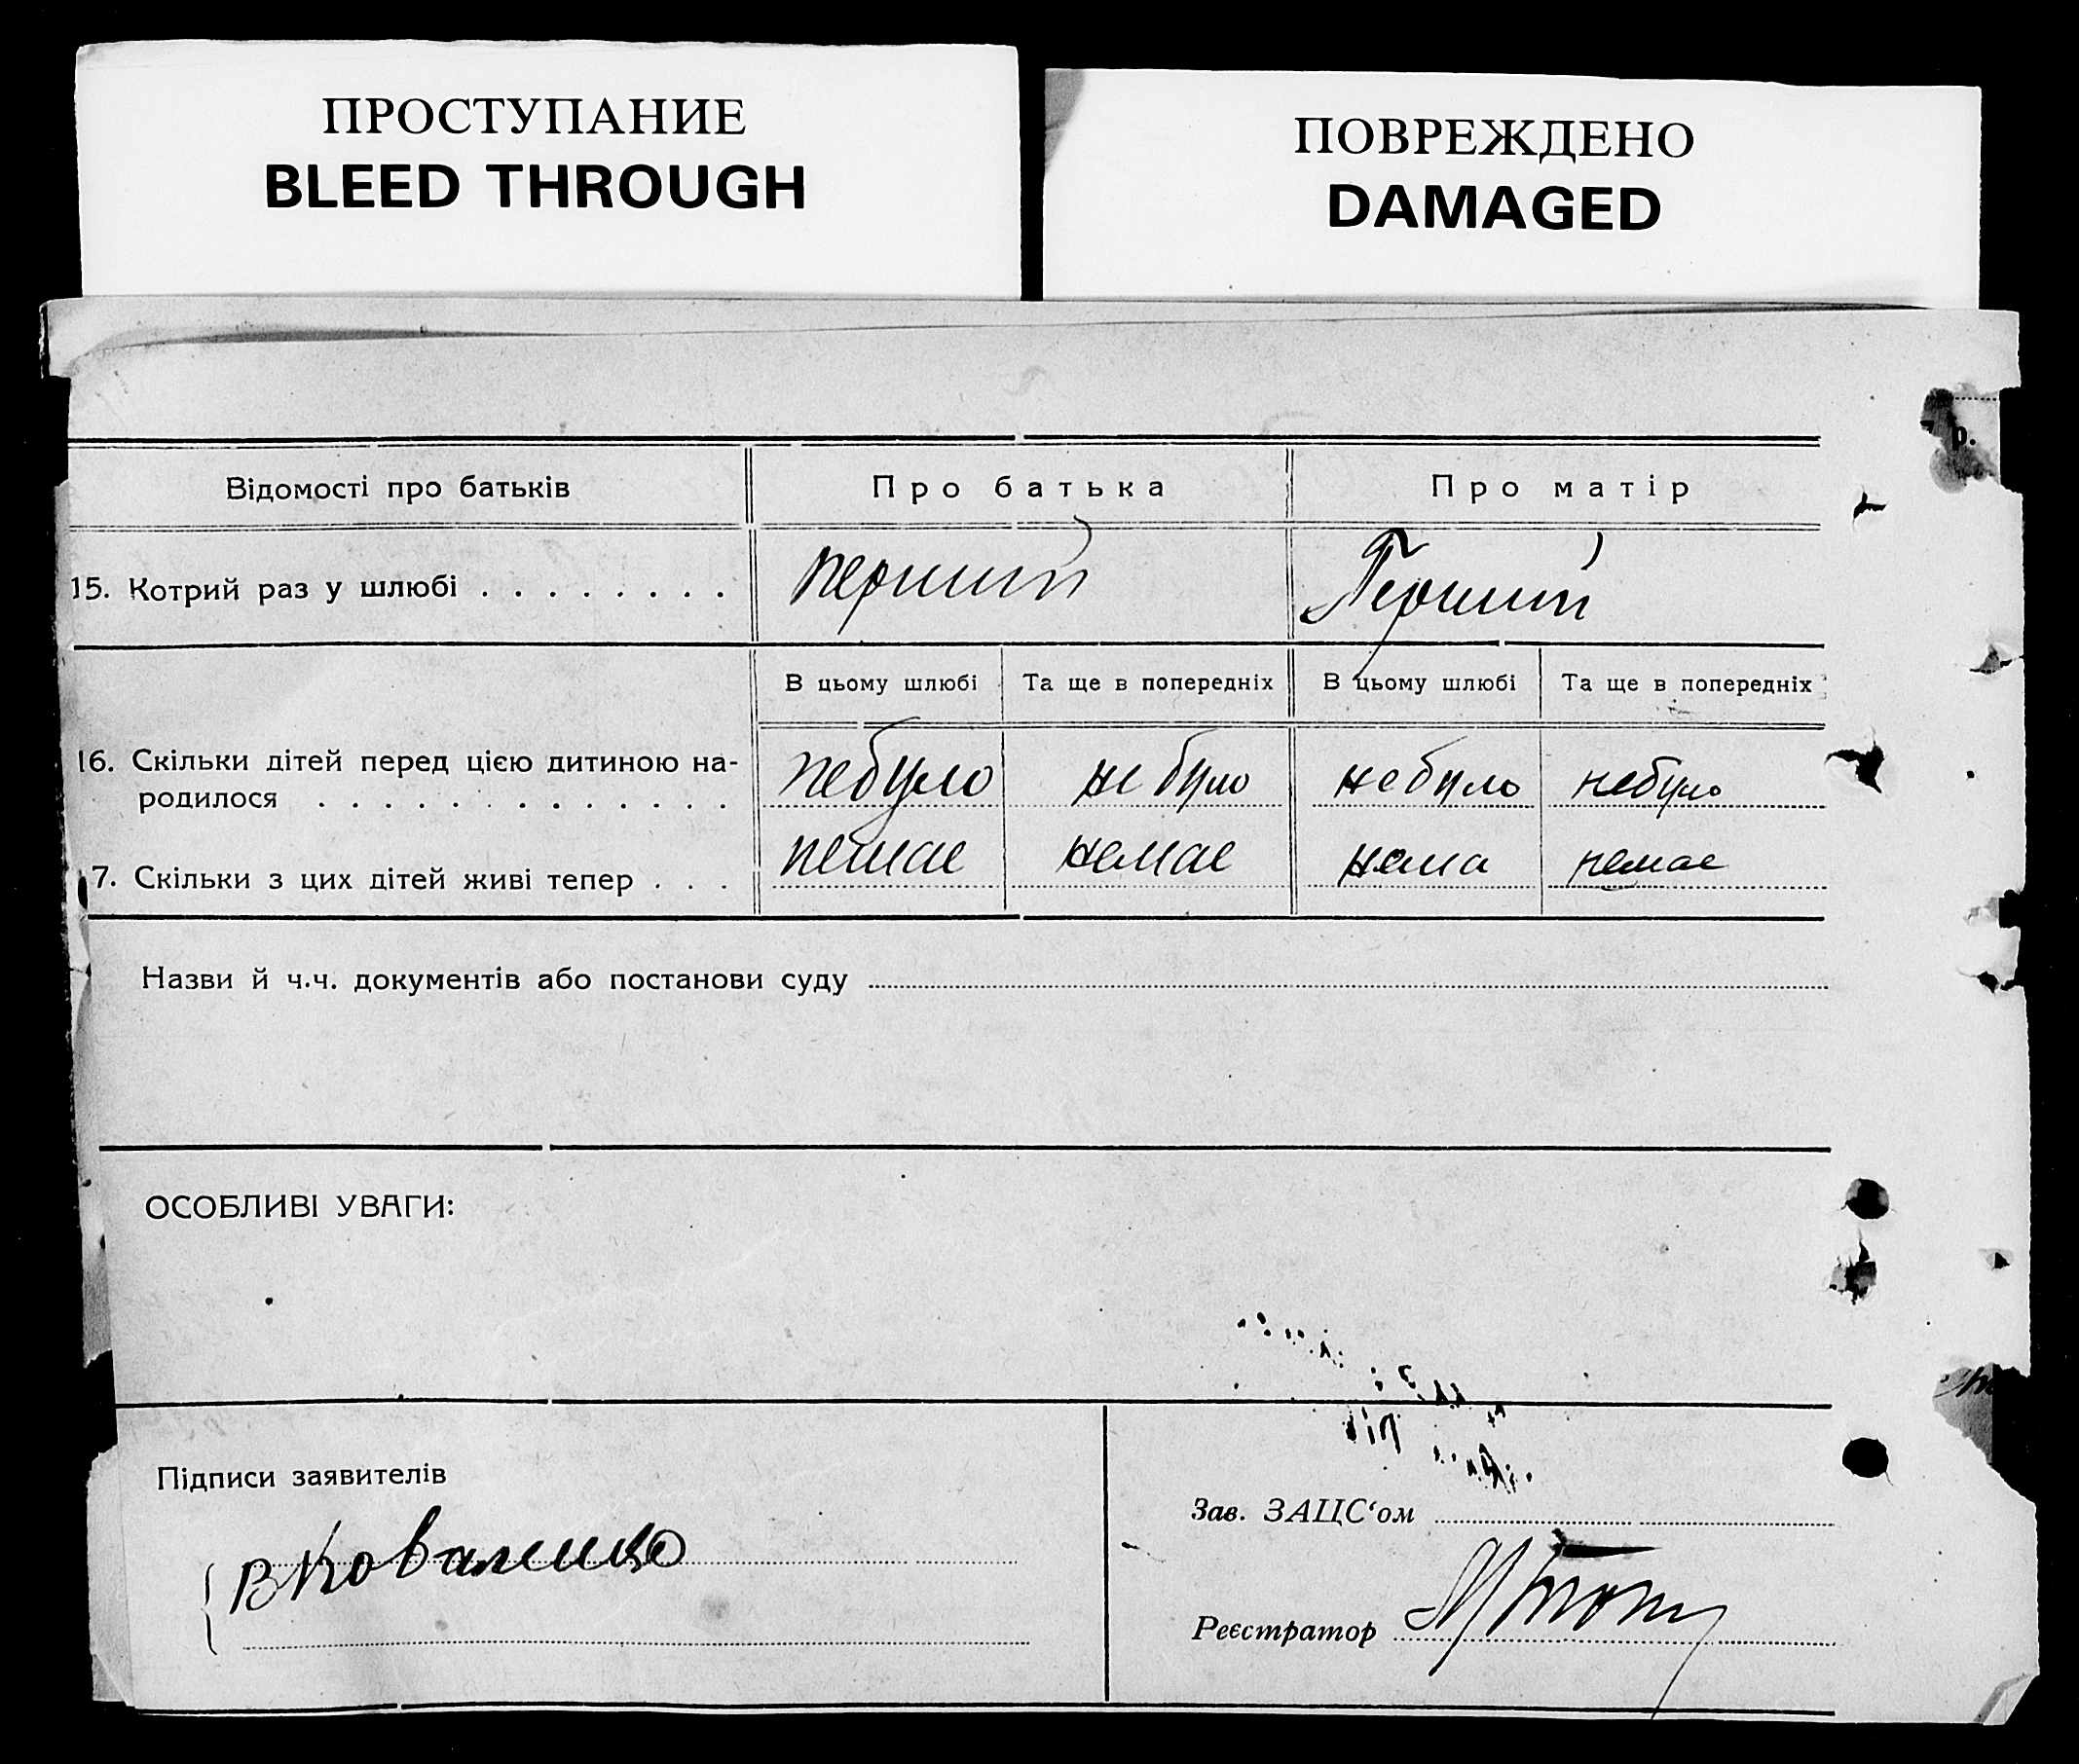 ПРОСТУПАНИЕ
BLEED THROUGH
ПОВРЕЖДЕНО
DAMAGED
р.
Відомості про батьків Про батька Про матір
15. Котрий раз у шлюбі . . . . . . . . перший Перший
В цьому шлюбі Та ще в попередніх В цьому шлюбі Та ще в попередніх
16. Скільки дітей перед цією дитиною на-
родилося . . . . . . . . . . . . . небуло не було небуло небуло
7. Скільки з цих дітей живі тепер . . . немає немає нема немає
Назви й ч.ч. документів або постанови суду
ОСОБЛИВІ УВАГИ:
Підписи заявителів
В Коваленко
Зав. ЗАЦС‘ом
Реєстратор